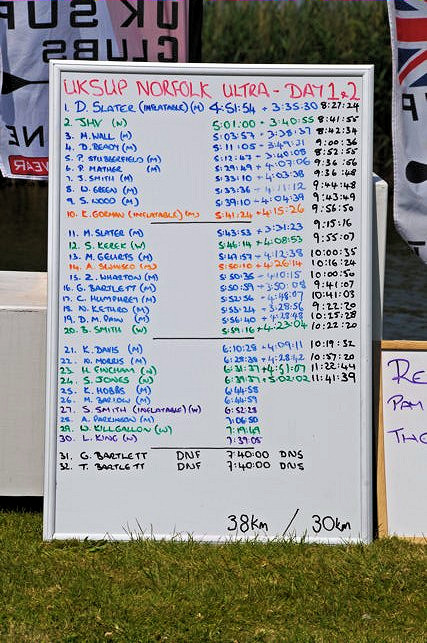 UK SUP
CLUBS
UKSUP NORFOLK ULTRA - DAY 1 & 2
1. D. SLATER (INFLATABLE) (M) 4:51:54 + 3:35:30 8:27:24
2. JHV (W) 5:01:00 + 3:40:55 8:41:55
3. M. WALL (M) 5:03:57 + 3:38:37 8:42:34
4. D. READY (M) 5:11:05 + 3:49:31 9:00:36
5. P. STUBBERFIELD (M) 5:12:47 + 3:40:08 8:52:55
6. P. MATHER (M) 5:29:49 + 4:07:06 9:36:56
7. J. SMITH (M) 5:33:10 + 4:03:38 9:36:48
8. W. GREEN (M) 5:33:36 + 4:11:12 9:44:48
9. S. WOOD (M) 5:39:10 + 4:04:39 9:43:49
10. E. GORMAN (INFLATABLE) (M) 5:41:24 + 4:15:26 9:56:50
11. M. SLATER (M) 5:43:53 + 3:31:23 9:15:16
12. S. KEREK (W) 5:46:14 + 4:08:53 9:55:07
13. M. (M) 5:49:57 + 4:12:38 10:00:35
14. A. (M) 5:50:10 + 4:26:14 10:16:24
15. Z. WHARTON (M) 5:50:35 + 4:10:15 10:00:50
16. G. BARTLETT (M) 5:50:59 + 3:50:08 9:41:07
17. C. HUMPHREY (M) 5:52:56 + 4:48:07 10:41:03
18. N. KETHRO (M) 5:53:24 + 3:28:56 9:22:20
19. D. M. PAW (M) 5:56:40 + 4:28:48 10:25:28
20. B. SMITH (W) 5:59:16 + 4:23:04 10:22:20
21. K. DAVIS (M) 6:10:28 + 4:09:11 10:19:32
22. N. MORRIS (M) 6:28:38 + 4:28:42 10:57:20
23. H. FINCHAM (W) 6:31:37 + 4:51:07 11:22:44
24. S. JONES (W) 6:39:37 + 5:02:02 11:41:39
25. K. HOBBS (M) 6:44:58
26. M. BARLOW (M) 6:44:59
27. S. SMITH (INFLATABLE) (W) 6:52:28
28. A. PARKINSON (M) 7:06:50
29. W. KILLGALLON (W) 7:19:49
30. L. KING (W) 7:39:05
31. G. BARTLETT DNF 7:40:00 DNS
32. T. BARTLETT DNF 7:40:00 DNS
38km / 30km
RE
PAM
THO